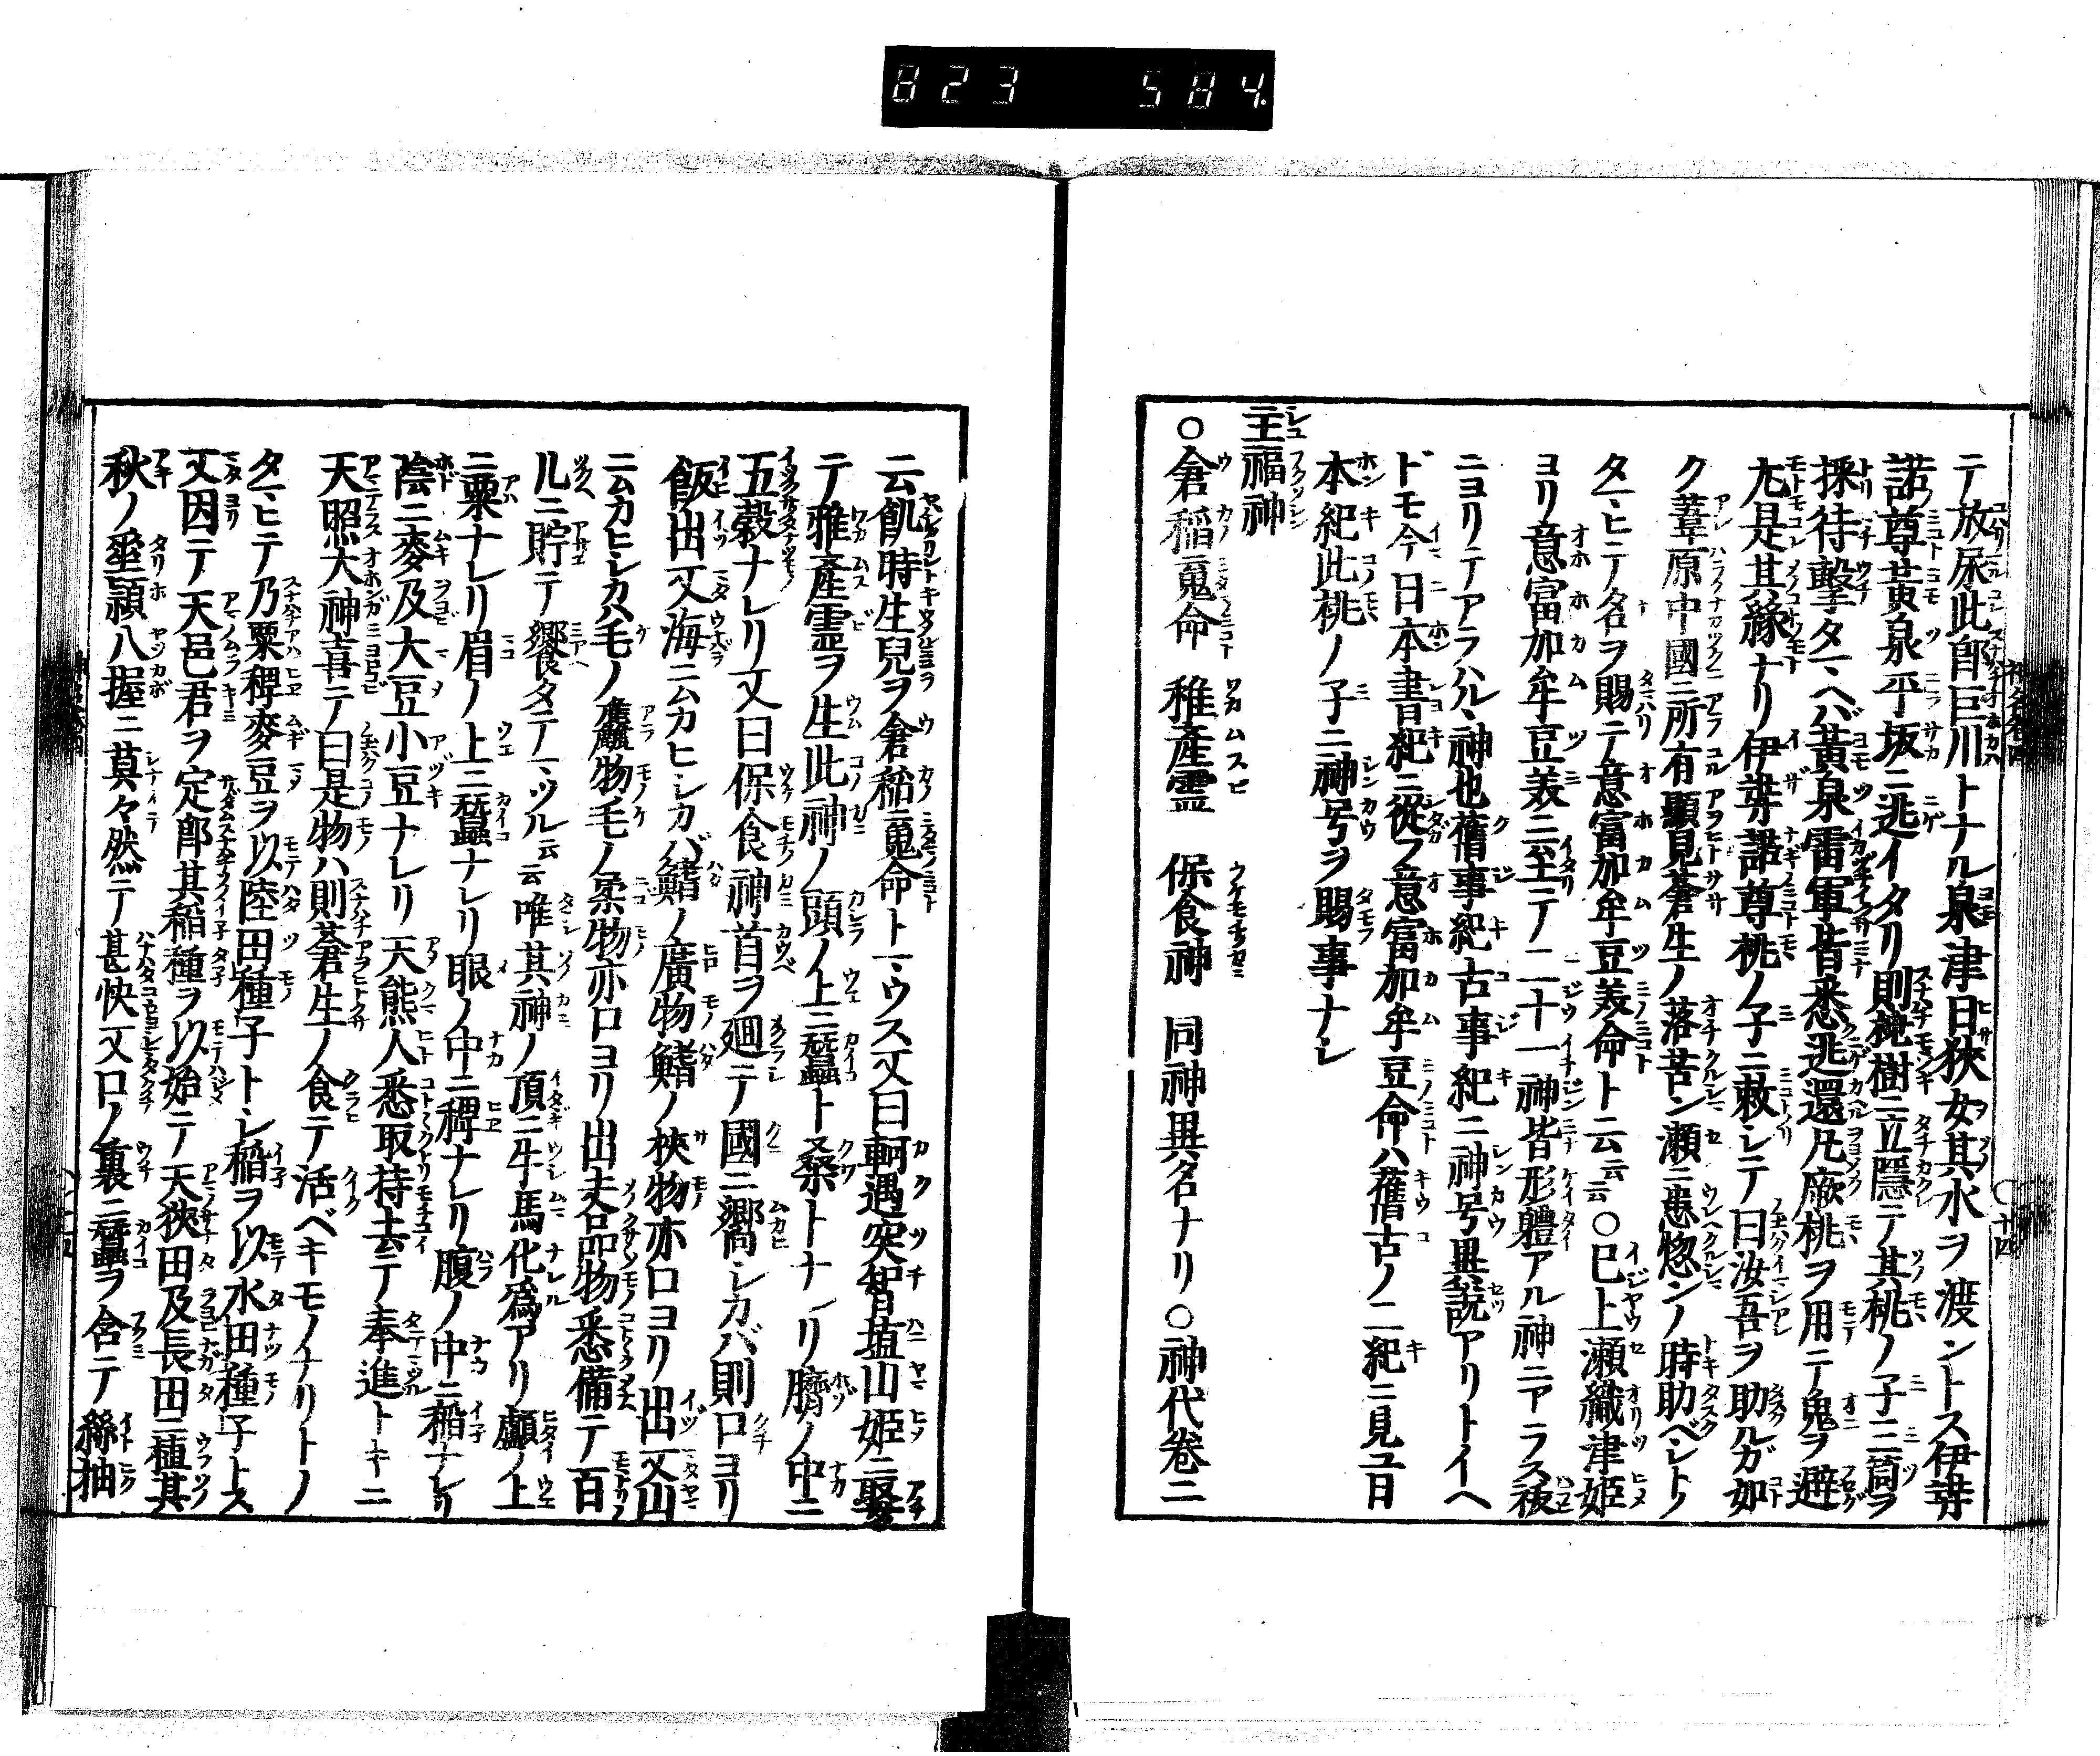 823 584.
テ放尿此即巨川トナル泉津日狹女其水ヲ渡ントス伊弉
諾尊黄泉平坂ニ逃イタリ則桃樹ニ立隱テ其桃ノ子三箇ヲ
採待撃タマヘバ黄泉雷軍皆悉逃還凡厥桃ヲ用テ鬼ヲ避
尤是其縁ナリ伊弉諾尊桃ノ子ニ敕シテ曰汝吾ヲ助ルガ如
ク葦原中國ニ所有顯見蒼生ノ落苦ン瀬ニ患惚ンノ時助ベシトノ
タマヒテ名ヲ賜テ意富加牟豆美命ト云云〇已上瀬織津姫
ヨリ意富加牟豆美ニ至テノ二十一神皆形軆アル神ニアラス祓
ニヨリテアラハルヽ神也舊事紀古事紀ニ神号異説アリトイヘ
ドモ今日本書紀ニ從フ意富加牟豆命ハ舊古ノ二紀ニ見ユ日
本紀此桃ノ子ニ神号ヲ賜事ナシ
主福神
〇倉稲䰟命 稚産霊 保食神 同神異名ナリ〇神代巻ニ
云飢時生兒ヲ倉稲䰟命トマウス又曰軻遇突智埴山姫ニ娶
テ稚産霊ヲ生此神ノ頭ノ上ニ蠶ト桑トナレリ臍ノ中ニ
五穀ナレリ又曰保食神首ヲ廻テ國ニ嚮シカバ則口ヨリ
飯出又海ニムカヒシカバ鰭ノ廣物鰭ノ狹物亦口ヨリ出又山
ニムカヒシカハ毛ノ麤物毛ノ柔物亦口ヨリ出夫品物悉備テ百
几ニ貯テ饗タテマツル云云唯其神ノ頂ニ牛馬化爲アリ顱ノ上
ニ粟ナレリ眉ノ上ニ蠶ナレリ眼ノ中ニ稗ナレリ腹ノ中ニ稲ナレリ
陰ニ麥及大豆小豆ナレリ天熊人悉取持去テ奉進トキニ
天照大神喜テ曰是物ハ則蒼生ノ食テ活ベキモノナリトノ
タマヒテ乃粟稗麥豆ヲ以陸田種子トシ稲ヲ以水田種子トス
又因テ天邑君ヲ定即其稲種ヲ以始テ天狹田及長田ニ植其
秋ノ垂穎八握ニ莫々然テ甚快又口ノ裏ニ蠶ヲ含テ絲抽